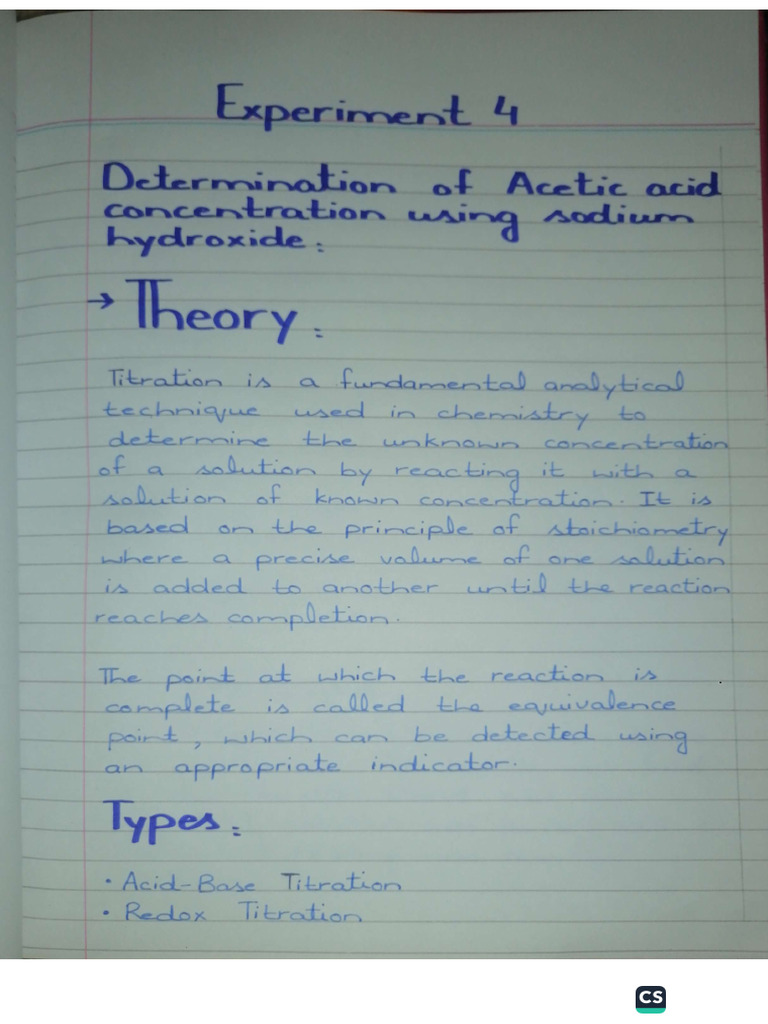 Experiment 4
Determination of Acetic acid
concentration using sodium
hydroxide:
→ Theory:
Titration is a fundamental analytical
technique used in chemistry to
determine the unknown concentration
of a solution by reacting it with a
solution of known concentration. It is
based on the principle of stoichiometry
where a precise volume of one solution
is added to another until the reaction
reaches completion.
The point at which the reaction is
complete is called the equivalence
point, which can be detected using
an appropriate indicator.
Types:
• Acid-Base Titration
• Redox Titration
CS